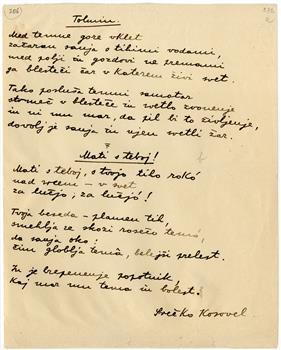 206
Tolmin.
Med temne gore vklet
začaran sanja s tihimi vodami,
med polji in gozdovi ne
ga blesteči čar v katerem živi svet.
Tako posluša temni samotar
v blesteče in svetlo zvonenje
in ni mu mar, da žil bi to življenje,
dovolj je sanja in njen svetli čar.
Mati s teboj!
Mati s teboj, s tvojo tiho roko
nad srcem – v svet
za lučjo, za lučjo!
Tvoja beseda – plamen tih,
smehlja se skozi rosečo temo,
da sanja oko:
čim globlja tema, belejši prelest.
Žu je hrepeneuje popotnik,
kaj mar mu tema in bolest.
Srečko Kosovel